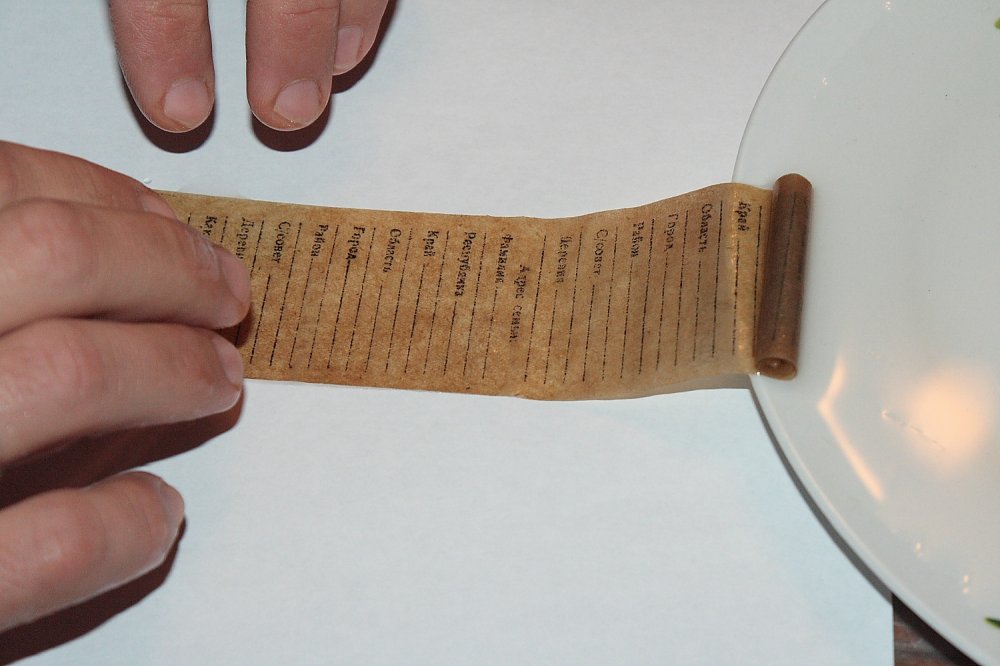 Край
Область
Город
Район
С/совет
Деревня
Адрес семьи
Фамилия
Республика
Край
Область
Город
Район
С/совет
Деревня